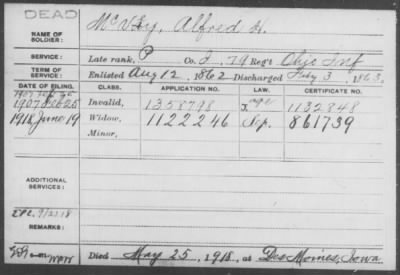 DEAD
NAME OF SOLDIER: McVey, Alfred H.
SERVICE: Late rank, P Co. I, 79 Reg't Ohio Inf
TERM OF SERVICE: Enlisted Aug 12, 1862 Discharged Feby 3, 1863.
DATE OF FILING. CLASS. APPLICATION NO. LAW. CERTIFICATE NO.
1907 Feb 25 Invalid, 1358798 1132848
1918 June 19 Widow, 1122246 Sep. 861739
Minor,
ADDITIONAL SERVICES:
9/21 18
REMARKS:
Died May 25, 1918, at Des Moines, Iowa